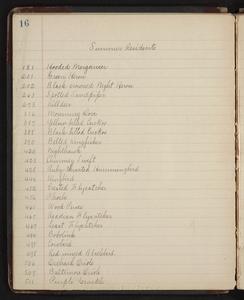 16
Summer Residents
Hooded Merganser
201 Green Heron
202 Black-crowned Night Heron
263 Spotted Sandpiper
273 Killdeer
316 Mourning Dove
387 Yellow-billed Cuckoo
388 Black-billed Cuckoo
390 Belted Kingfisher
420 Nighthawk
423 Chimney Swift
428 Ruby-throated Hummingbird
444 Kingbird
452 Crested Flycatcher
456 Phoebe
461 Wood Pewee
465 Acadian Flycatcher
467 Least Flycatcher
494 Bobolink
495 Cowbird
498 Red-winged Blackbird
506 Orchard Oriole
507 Baltimore Oriole
511 Purple Grackle